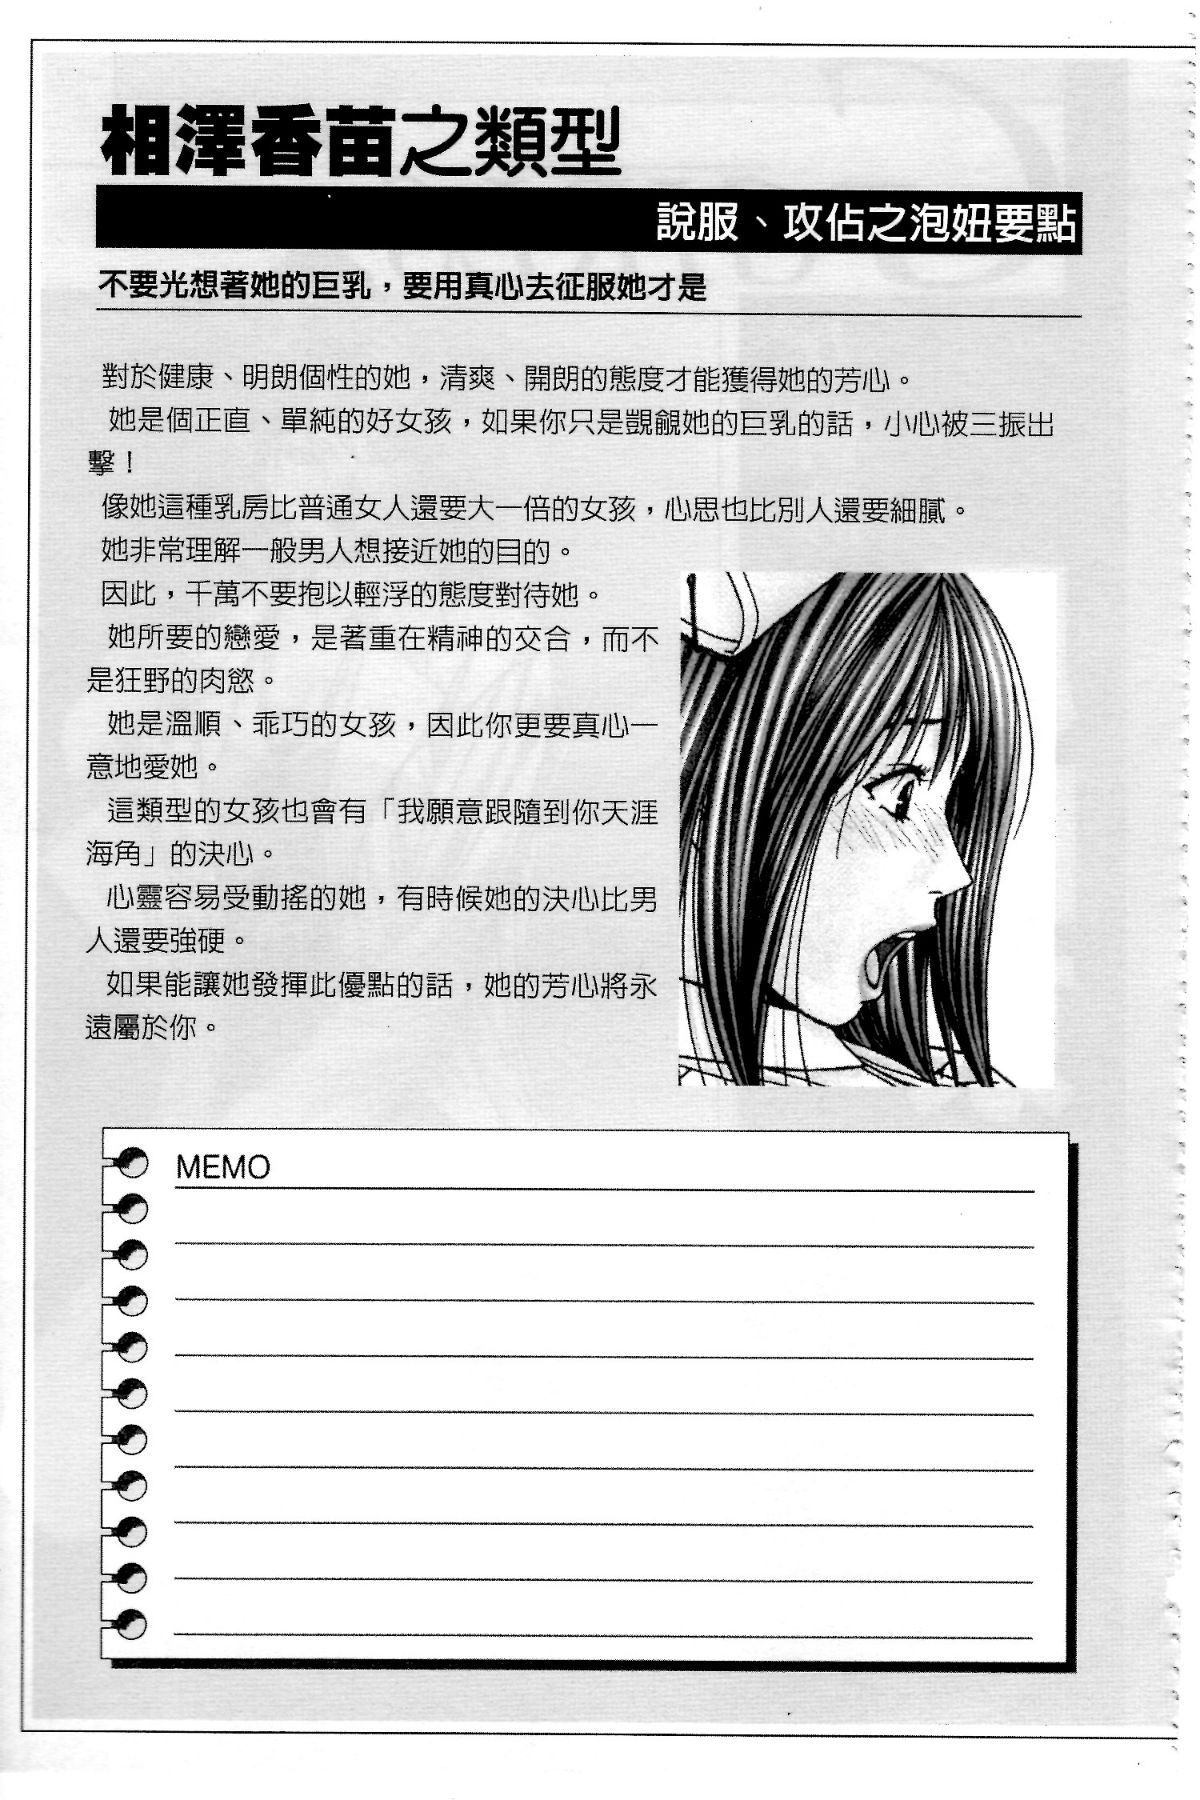 相澤香苗之類型
說服、攻佔之泡妞要點
不要光想著她的巨乳，要用真心去征服她才是
對於健康、明朗個性的她，清爽、開朗的態度才能獲得她的芳心。
她是個正直、單純的好女孩，如果你只是覬覦她的巨乳的話，小心被三振出
擊！
像她這種乳房比普通女人還要大一倍的女孩，心思也比別人還要細膩。
她非常理解一般男人想接近她的目的。
因此，千萬不要抱以輕浮的態度對待她。
她所要的戀愛，是著重在精神的交合，而不
是狂野的肉慾。
她是溫順、乖巧的女孩，因此你更要真心一
意地愛她。
這類型的女孩也會有「我願意跟隨到你天涯
海角」的決心。
心靈容易受動搖的她，有時候她的決心比男
人還要強硬。
如果能讓她發揮此優點的話，她的芳心將永
遠屬於你。
MEMO